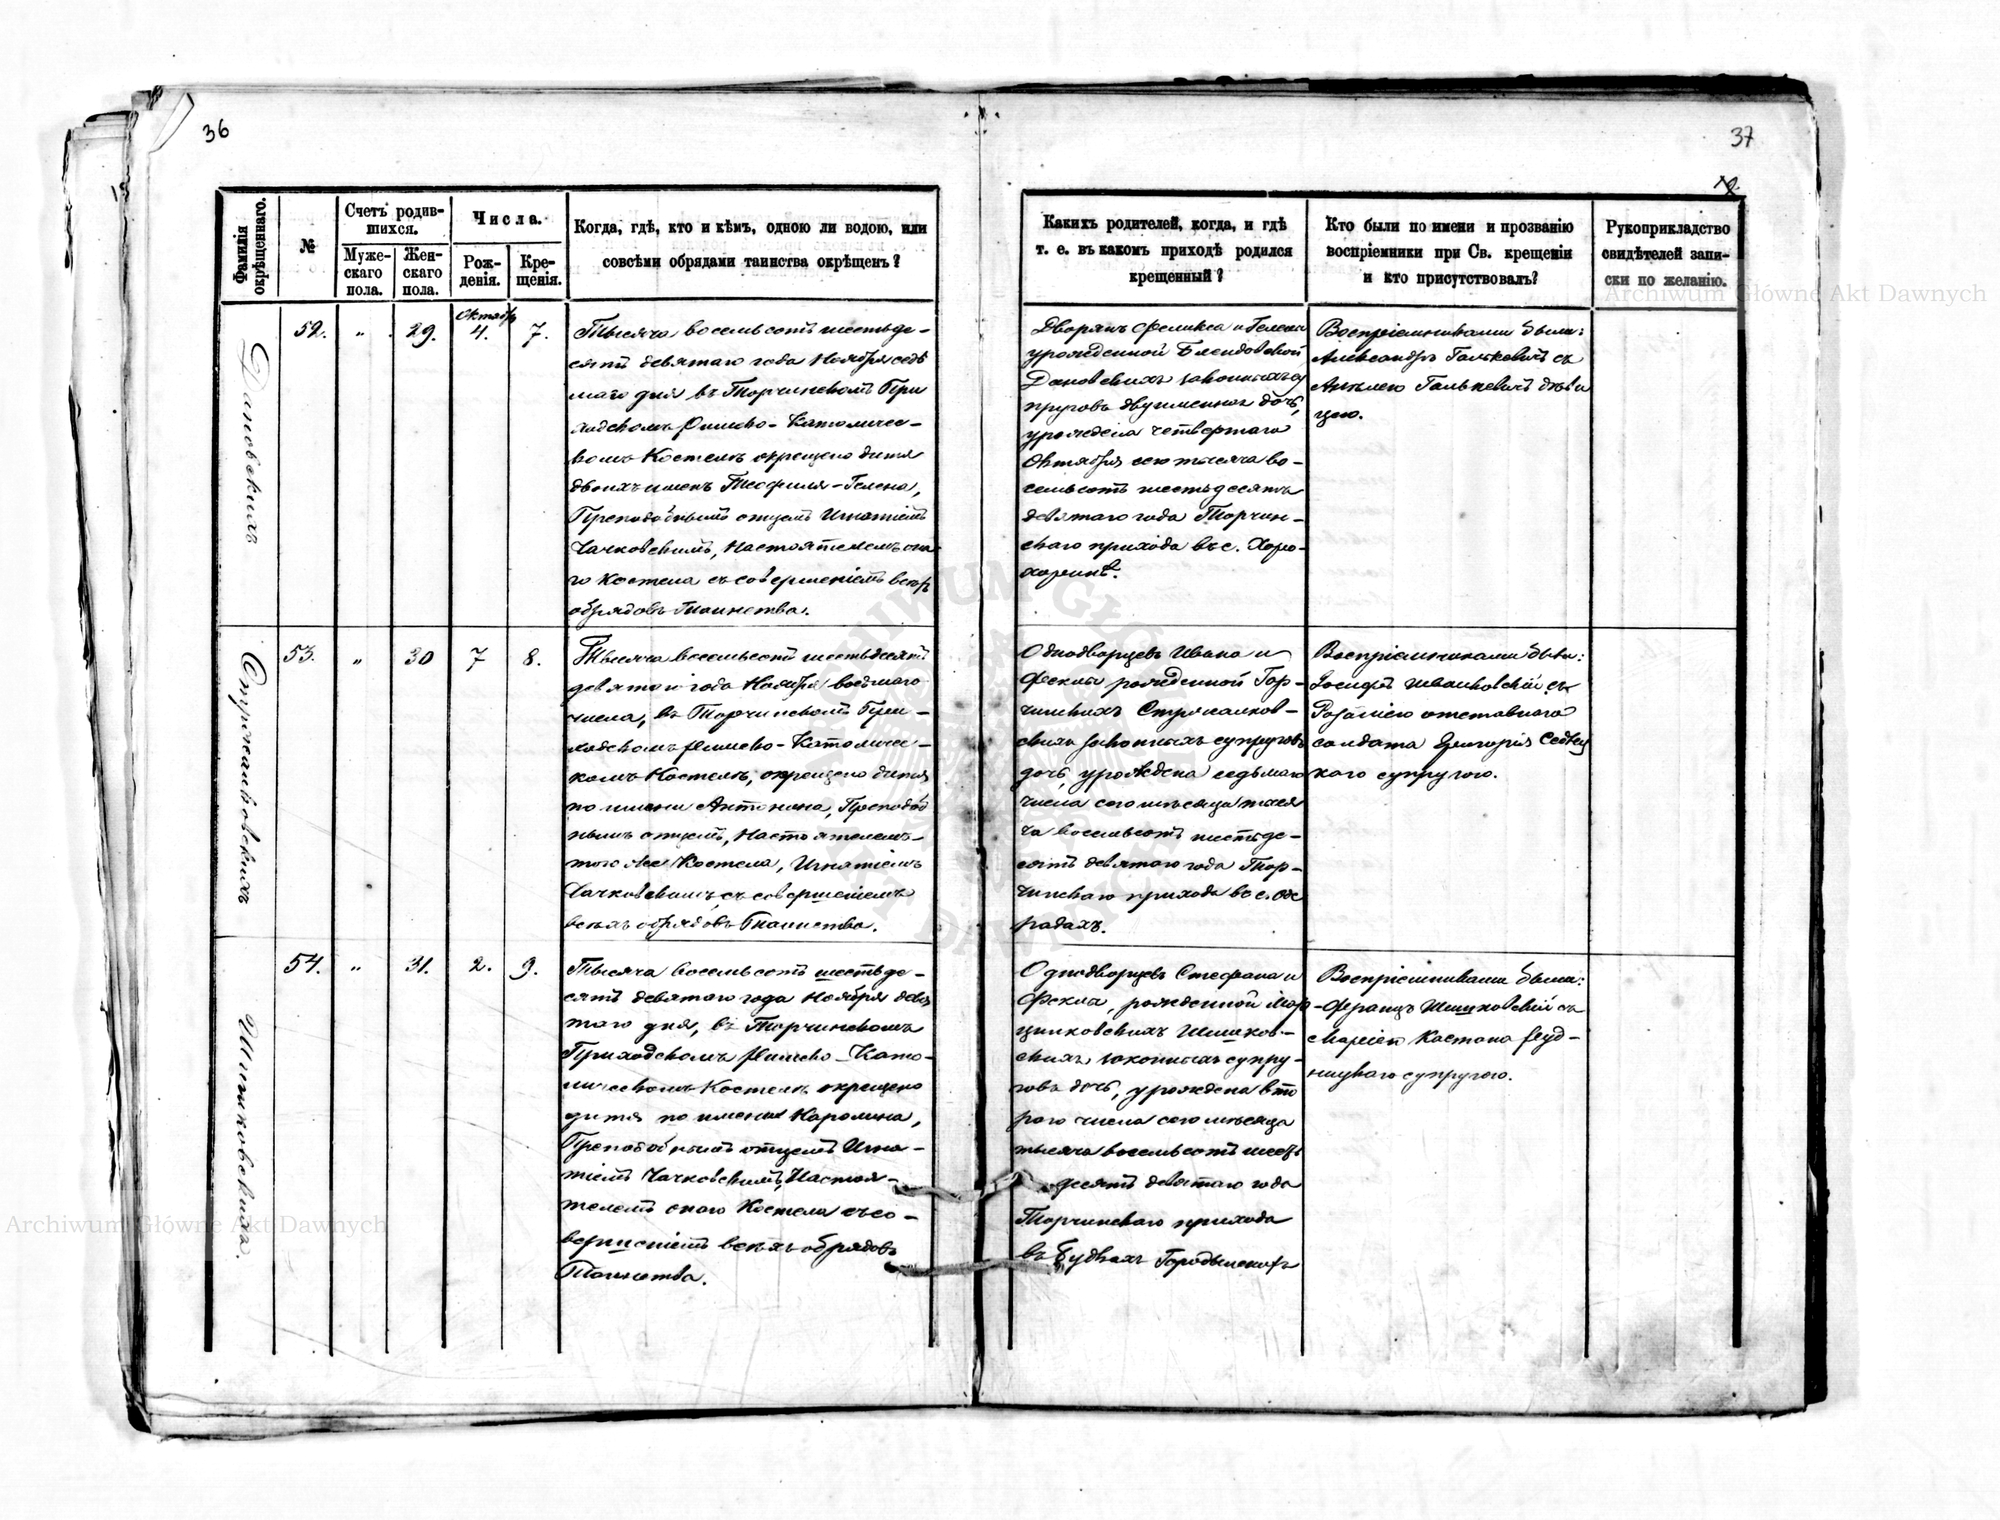 36
37
Фамилія окрѣщеннаго.
№
Счетъ родив-
шихся.
Муже-
скаго
пола.
Жен-
скаго
пола.
Числа.
Рож-
денія.
Кре-
щенія.
Когда, гдѣ, кто и кѣмъ, одною ли водою, или
совсѣми обрядами таинства окрѣщенъ?
Каких​ъ родителей, когда, и гдѣ
т. е. въ какомъ приходѣ родился
крещенный?
Кто были по имени и прозванію
воспріемники при Св. крещеніи
и кто присутствовалъ?
Рукоприкладство
свидѣтелей запи-
ски по желанію.
Дановскихъ
52. „ 29. Октября 4. 7.
Тысяча восемьсотъ шестьде-
сятъ девятаго года Ноября седь
маго дня въ Торчинскомъ При
ходскомъ Римско-Католичес-
комъ Костелѣ окрещено дитя
двоихъ именъ Теофиля-Гелена,
Преподобнымъ отцемъ Игнатіемъ
Чачковскимъ, Настоятелемъ она
го Костела съ совершеніемъ всѣхъ
обрядовъ Таинства.
Дворянъ Феликса и Гелены
урожденной Блендовской
Дановскихъ законныхъ су
пруговъ двуименная дочь,
урождена четвертаго
Октября сего тысяча во-
семьсотъ шестьдесятъ
девятаго года Торчин-
скаго прихода въ с. Хоро-
хоринѣ.
Воспріемниками были:
Александръ Галькевичъ съ
Анелею Галькевичъ дѣви
цею.
Стржалковскихъ
53. „ 30 7 8.
Тысяча восемьсотъ шестьдесятъ
девятого года Ноября восьмаго
числа, въ Торчинскомъ При-
ходскомъ Римско-Католичес-
комъ Костелѣ, окрещено дитя
по имени Антонина, Преподоб
нымъ отцемъ, Настоятелемъ-
того же Костела, Игнатіемъ
Чачковскимъ, съ совершеніемъ
всѣхъ обрядовъ Таинства.
Однодворцевъ Ивана и
Феклы рожденной Гор-
чинскихъ Стржалков-
скихъ законныхъ супруговъ
дочь, урождена седьмаго
числа сего мѣсяца тыся
ча восемьсотъ шестьде-
сятъ девятаго года Тор-
чинскаго прихода въ с.
радахъ.
Воспріемниками были:
Іосифъ Ивановскій съ
Розаліею отставнаго
солдата Григорія
каго супругою.
Шишковская.
54. „ 31. 2. 9.
Тысяча восемьсотъ шестьде-
сятъ девятаго года Ноября девя
таго дня, въ Торчинскомъ
Приходскомъ Римско-Като-
лическомъ Костелѣ окрещено
дитя по имени Каролина,
Преподобнымъ отцемъ Игна-
тіемъ Чачковскимъ, Настоя-
телемъ оного Костела съ со-
вершеніемъ всѣхъ обрядовъ
Таинства.
Однодворцевъ Стефана и
Феклы, рожденной Мар
цинковскихъ Шишков-
скихъ законныхъ супру-
говъ дочь, урождена вто
рого числа сего мѣсяца
тысяча восемьсотъ шесть
десятъ девятаго года
Торчинскаго прихода
въ Будкахъ
Воспріемниками были:
Францъ Шишковскій съ
Маріею Каетана Руд-
ницкаго супругою.
Archiwum Główne Akt Dawnych
Archiwum Główne Akt Dawnych